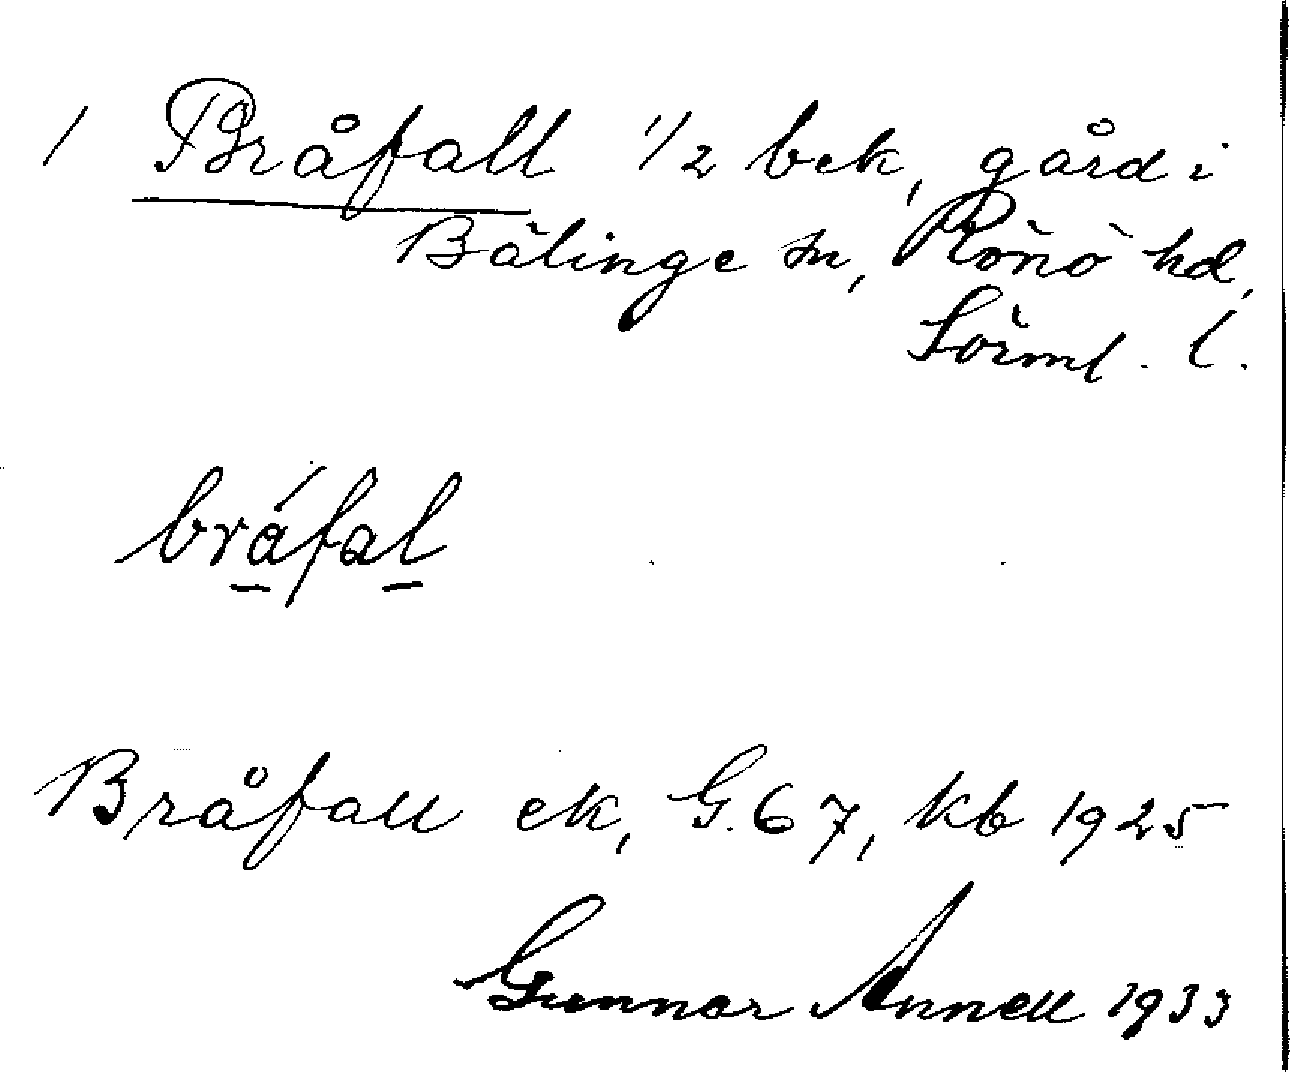 1 Bråfall 1/2 bek, gård i
Bälinge sn, Rönö hd,
Sörml. l.
bráfal
Bråfall ek, G. 67, kb 1925
Gunnar Annell 1933